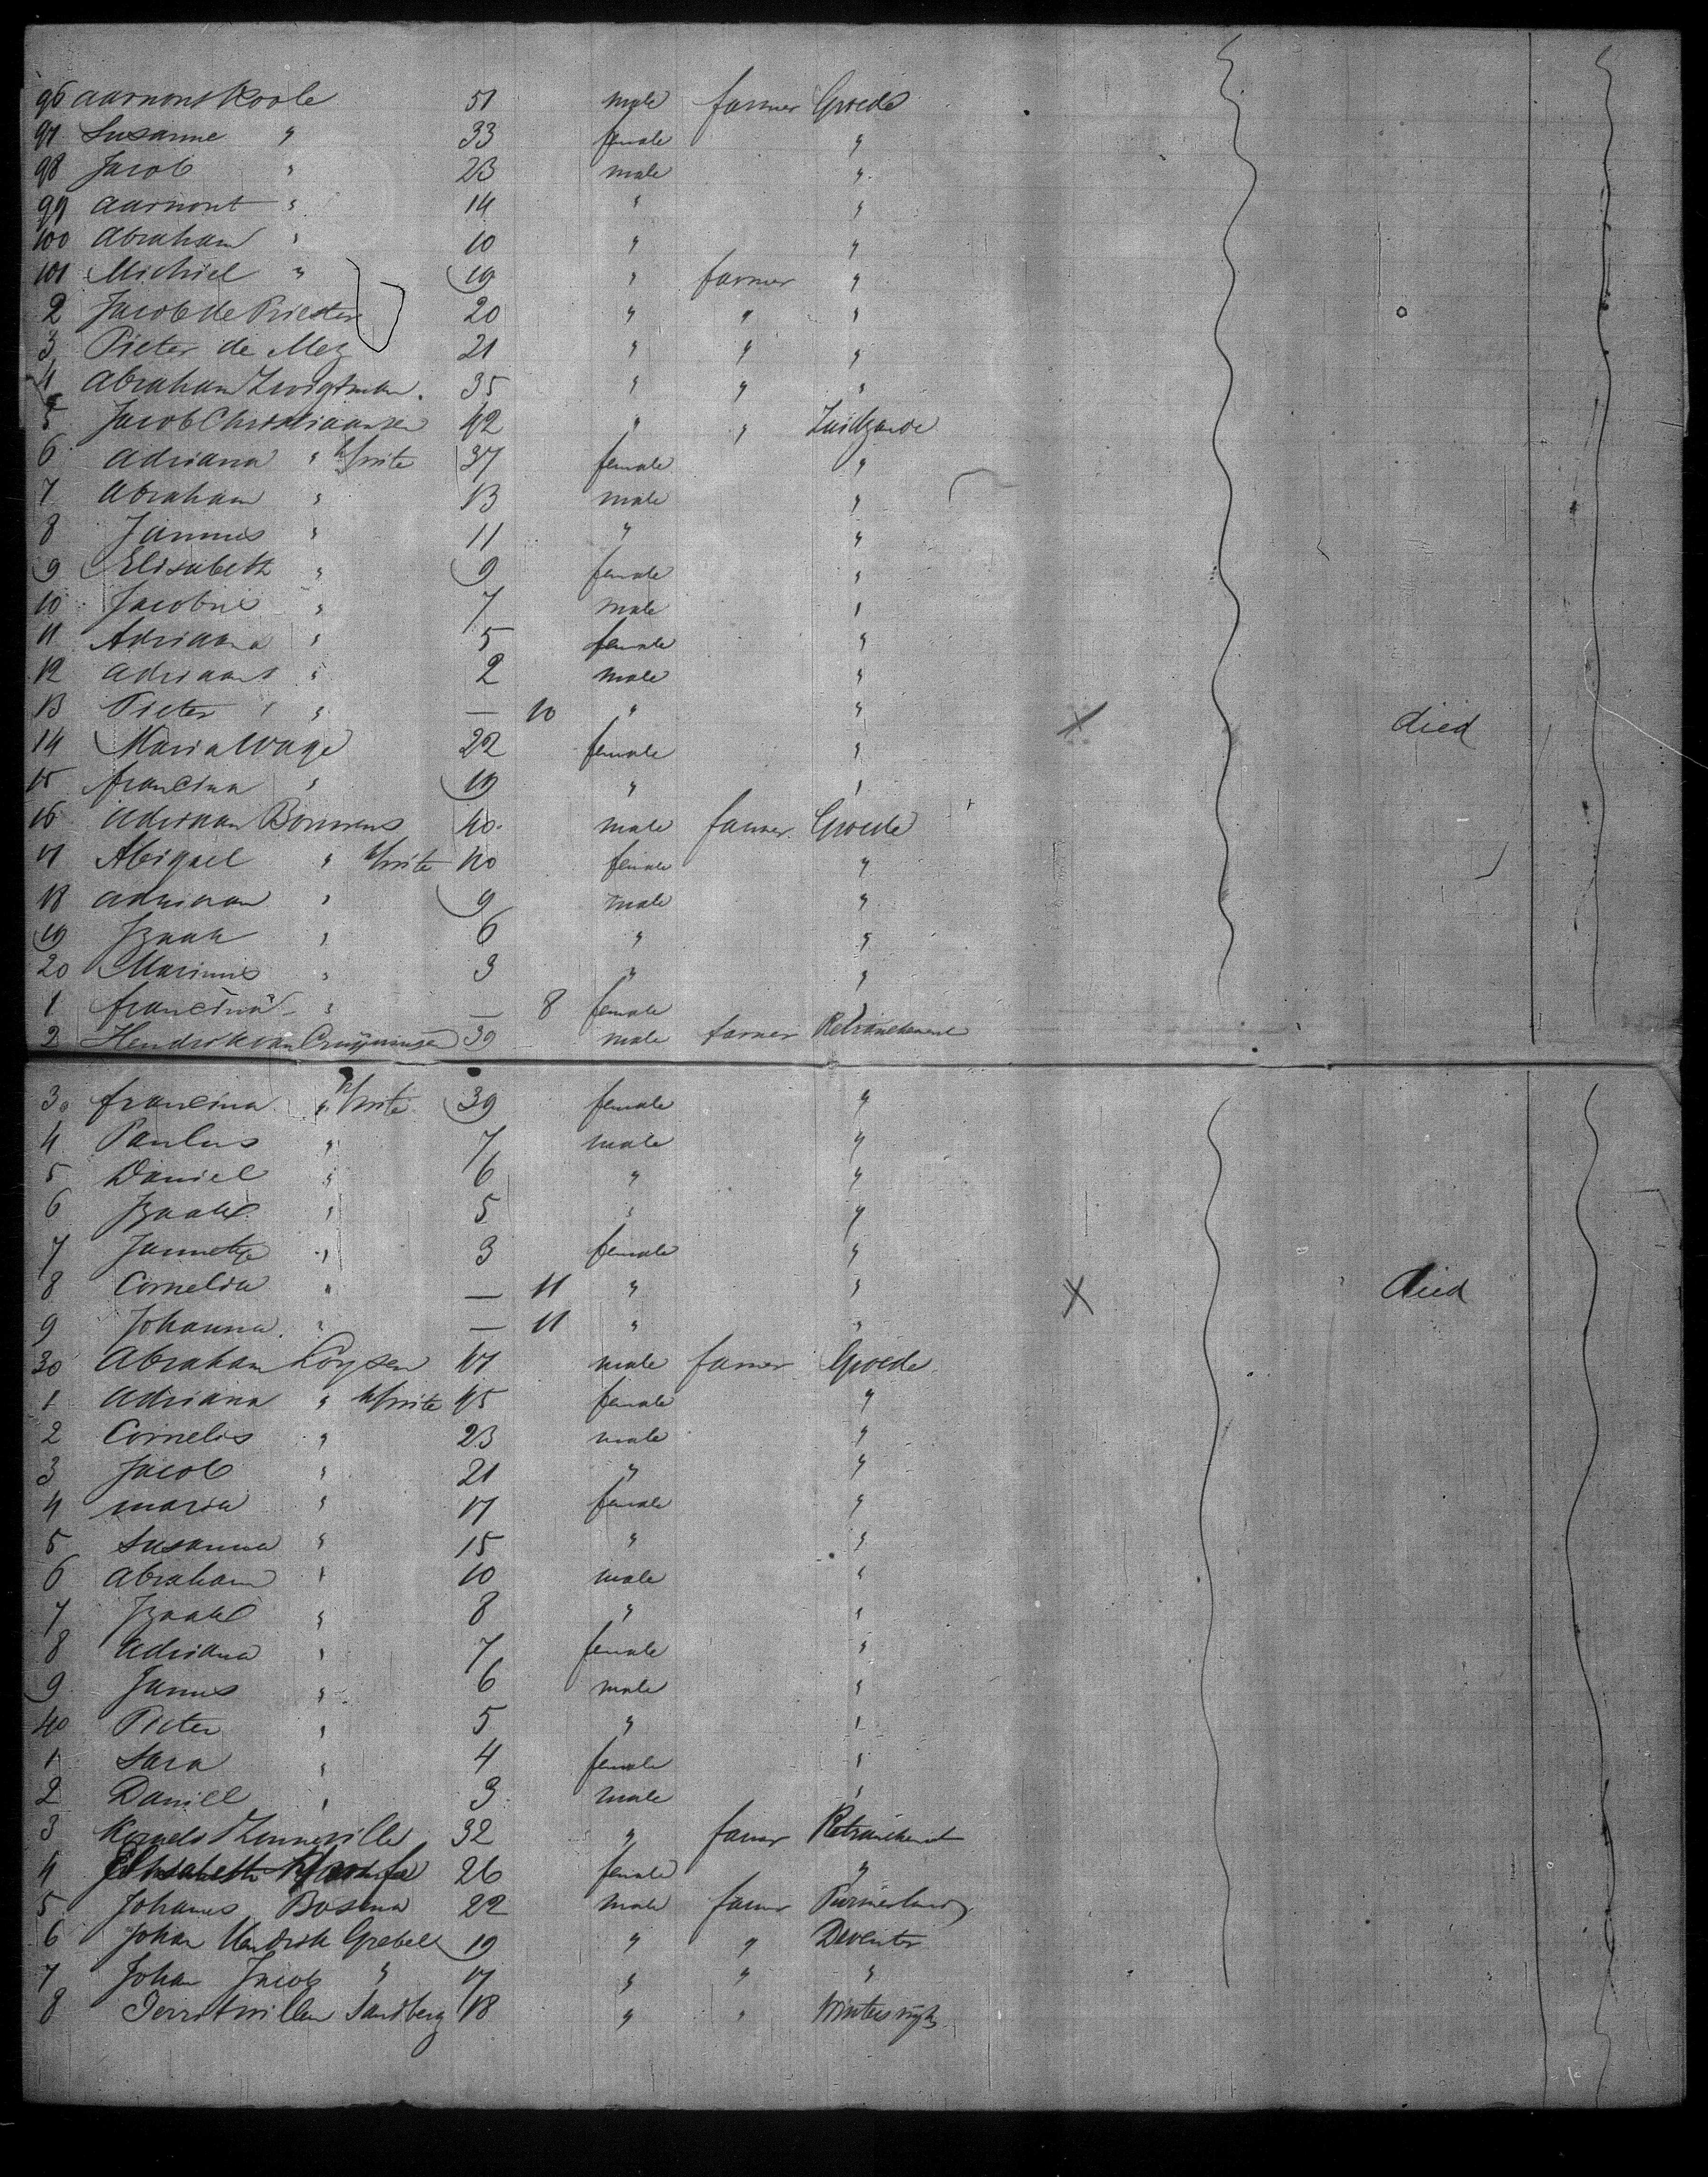 96 Aarnout Koole 51 male farmer Groede
97 Susanne " 33 female "
98 Jacob " 23 male "
99 Aarnout " 14 " "
100 Abraham " 10 " "
101 Michiel " 19 " farmer "
2 Jacob de Priester 20 " " "
3 Pieter de Mey 21 " " "
4 Abraham Zwigtman. 35 " " "
5 Jacob Christiaansen 42 " " Zuidzande
6 Adriana " 37 female "
7 Abraham " 13 male "
8 Jannis " 11 " "
9 Elisabeth " 9 female "
10 Jacobus " 7 male "
11 Adriana " 5 female "
12 Adriaan " 2 male "
13 Pieter " — 10 " " X died
14 Maria Wage 22 female "
15 francina " 19 " "
16 Adriaan 40 male farmer Groede
17 Abigael " 40 female "
18 adriaan " 9 male "
19 Izaak " 6 " "
20 Marinus " 3 " "
1 francina " — 8 female "
2 Hendrik van Cruijningen 39 male farmer Retranchement
3 francina " 39 female "
4 Paulus " 7 male "
5 Daniel " 6 " "
6 Izaak " 5 " "
7 Jannetje " 3 female "
8 Cornelia " — 11 " " X died
9 Johanna " — 11 " "
30 Abraham 47 male farmer Groede
1 Adriana " 45 female "
2 Cornelis " 23 male "
3 Jacob " 21 " "
4 maria " 17 female "
5 Susanna " 15 " "
6 Abraham " 10 male "
7 Izaak " 8 " "
8 Adriana " 7 female "
9 Jannis " 6 male "
40 Pieter " 5 " "
1 Sara " 4 female "
2 Daniel " 3 male "
3 32 " farmer Retranchement
4 Elisabeth 26 female "
5 Johanes Bosma 22 male farmer Purmerland
6 Johan Hendrik Grebel 19 " " Deventer
7 Johan Jacob " 17 " " "
8 Gerrit Willem Sandberg 18 " " Winterswijk